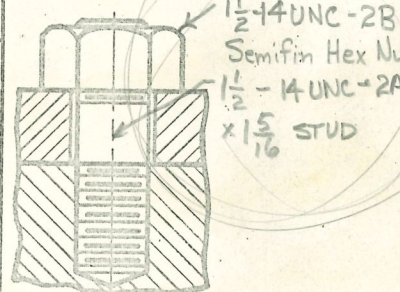 1 1/2-14 UNC-2B
Semifin Hex
1 1/2 - 14 UNC-2A
x 1 5/16 STUD